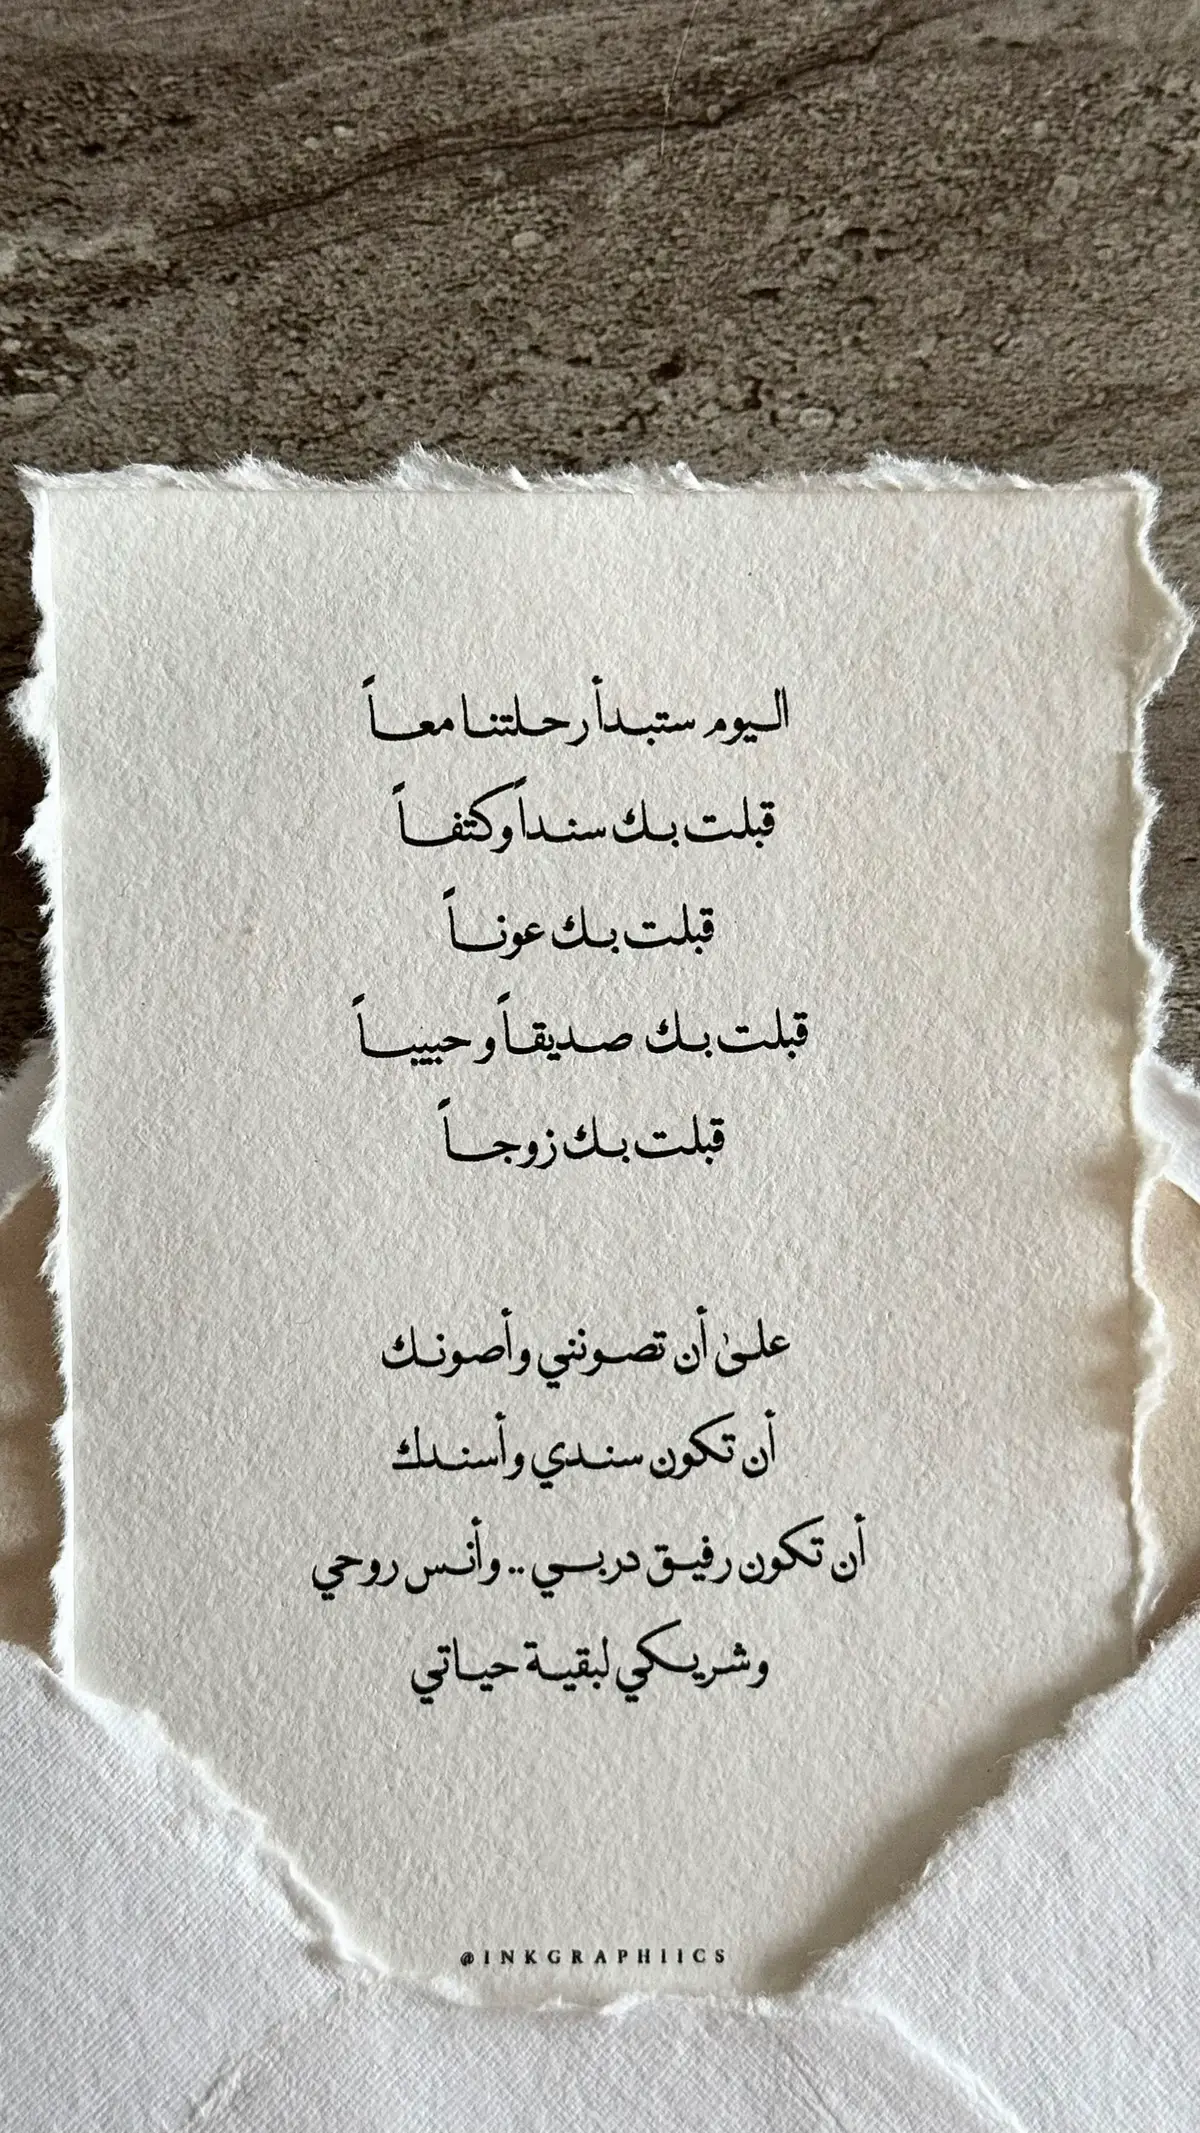 اليوم ستبدأ رحلتنا معاً
قبلت بك سنداً وكتفاً
قبلت بك عوناً
قبلت بك صديقاً و حبيباً
قبلت بك زوجاً
علىٰ أن تصونني وأصونك
أن تكون سندي وأسندك
أن تكون رفيق دربي .. وأنس روحي
وشريكي لبقية حياتي
@INKGRAPHIICS